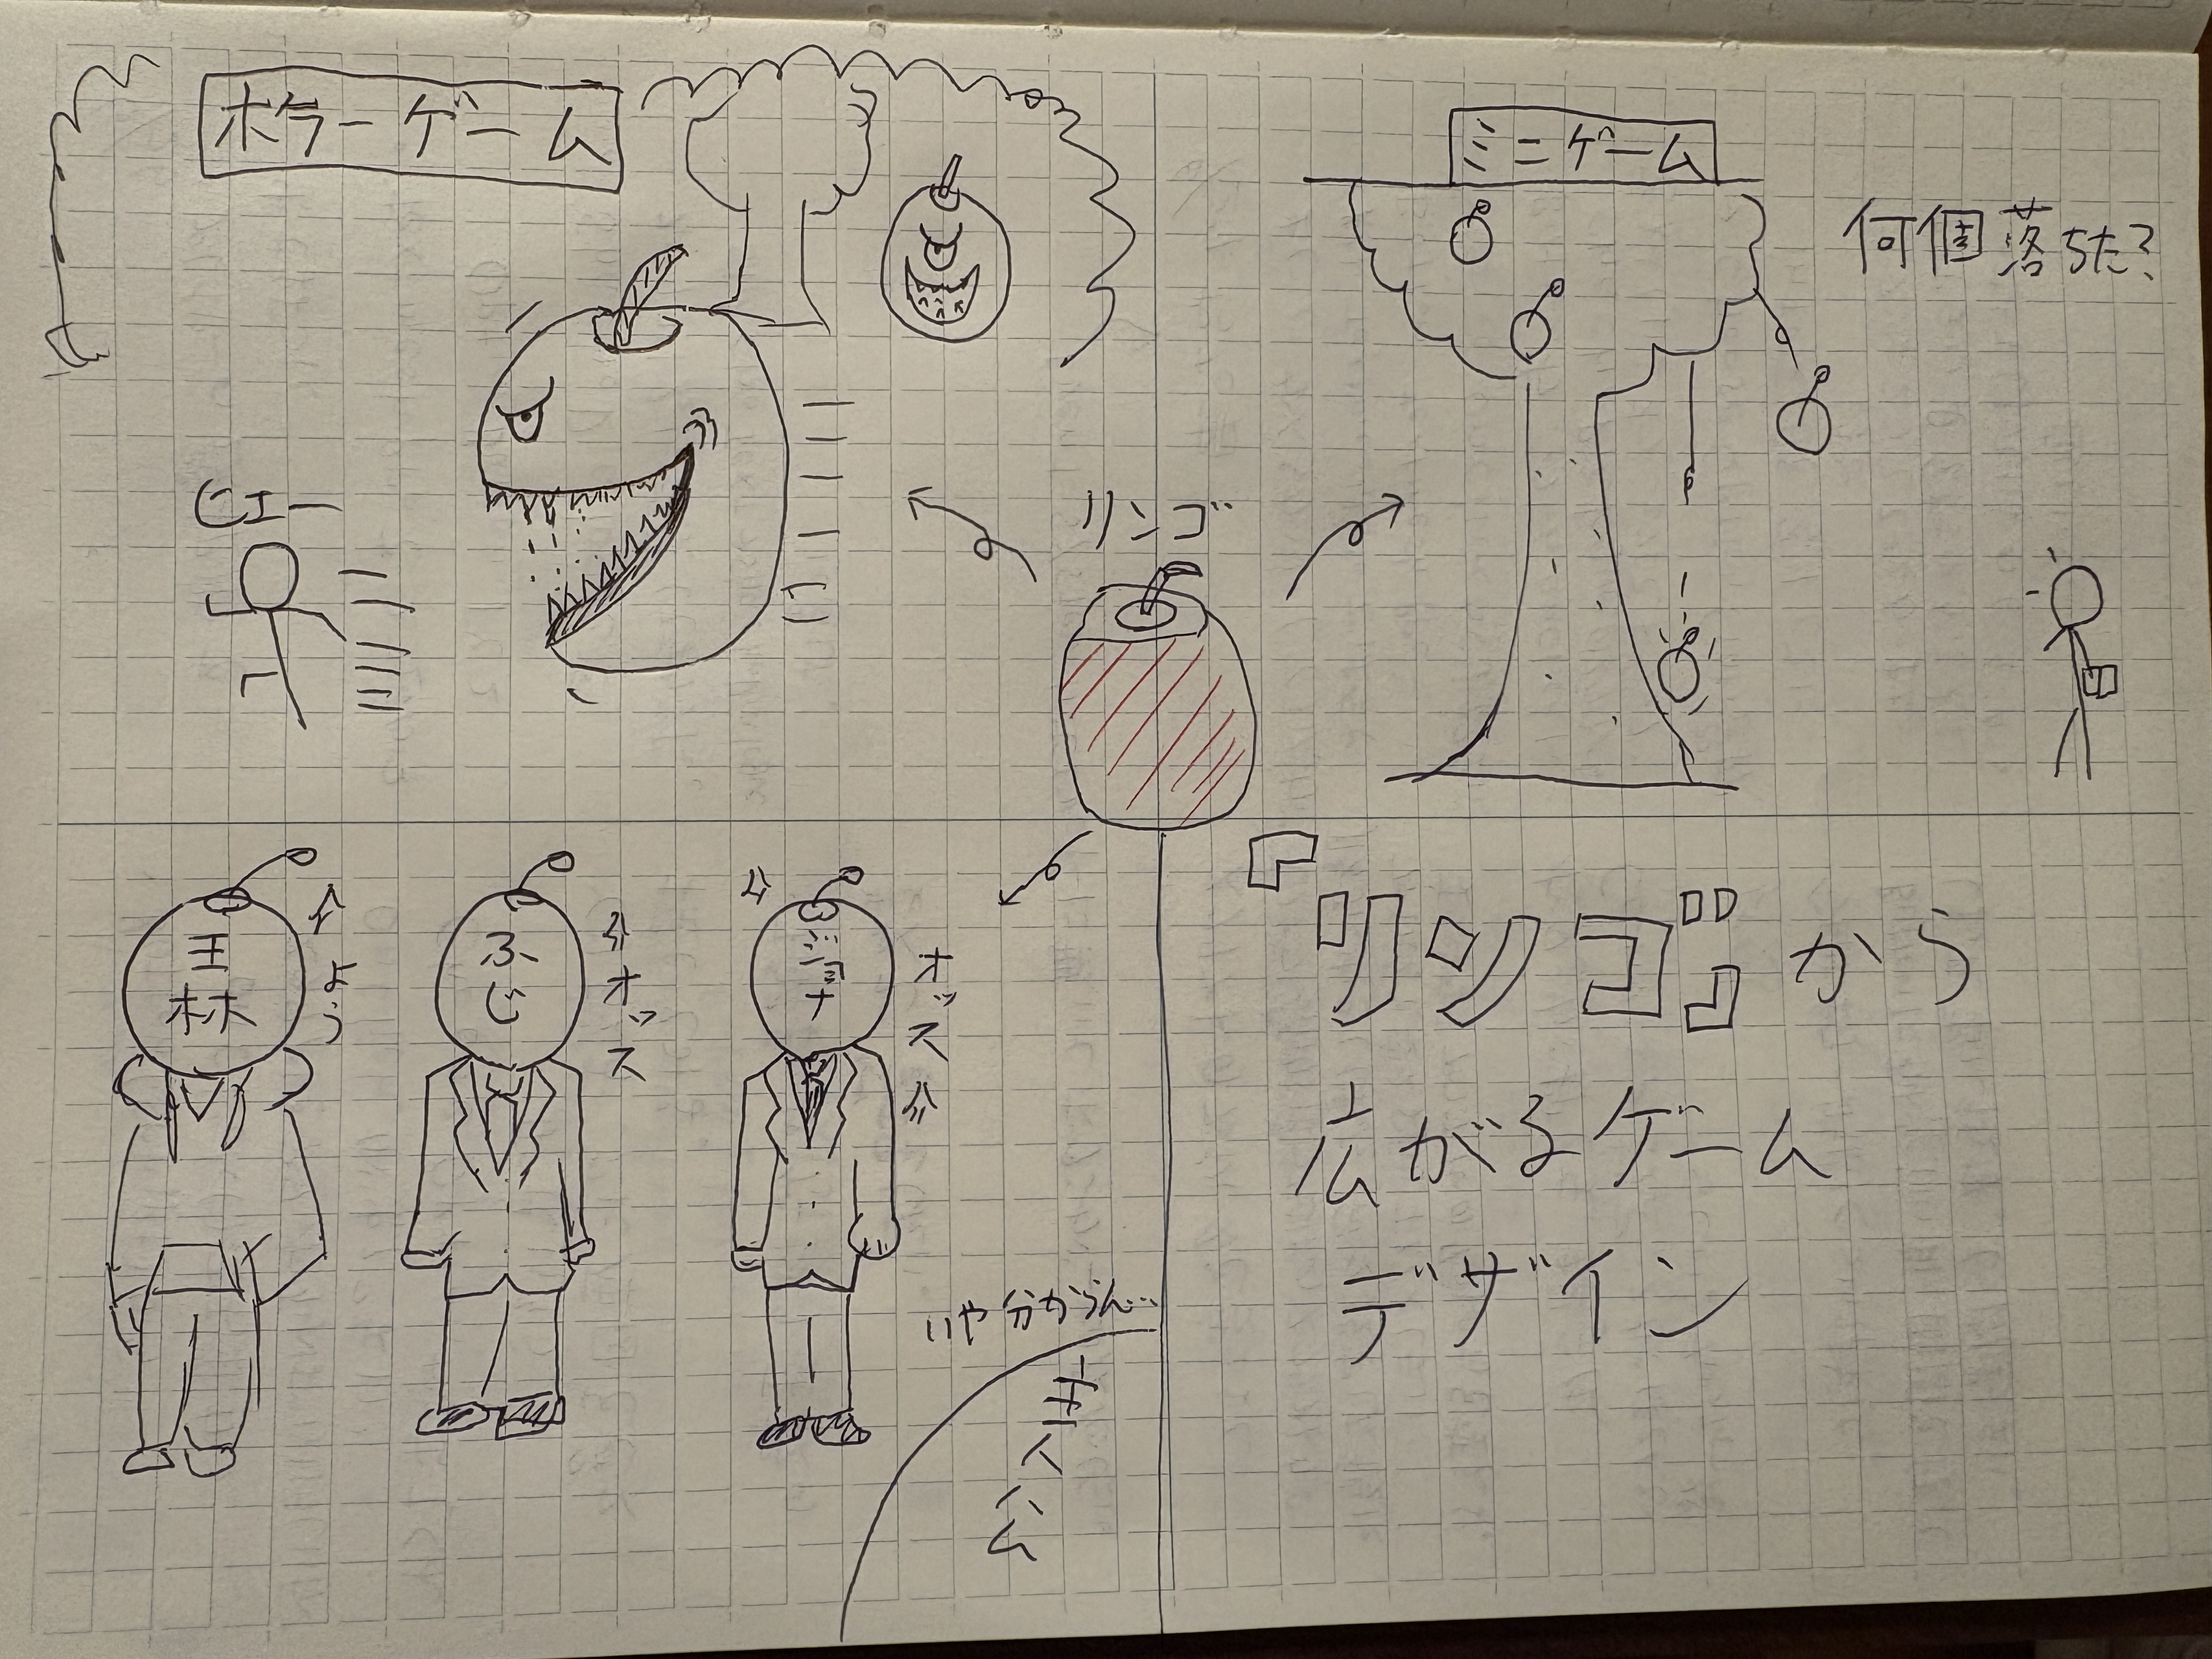 ホラーゲーム
ヒエー
ミニゲーム
何個落ちた?
リンゴ
王林
よう
ふじ
オッス
オッス
いや分からん…
主人公
『リンゴ』から
広がるゲーム
デザイン